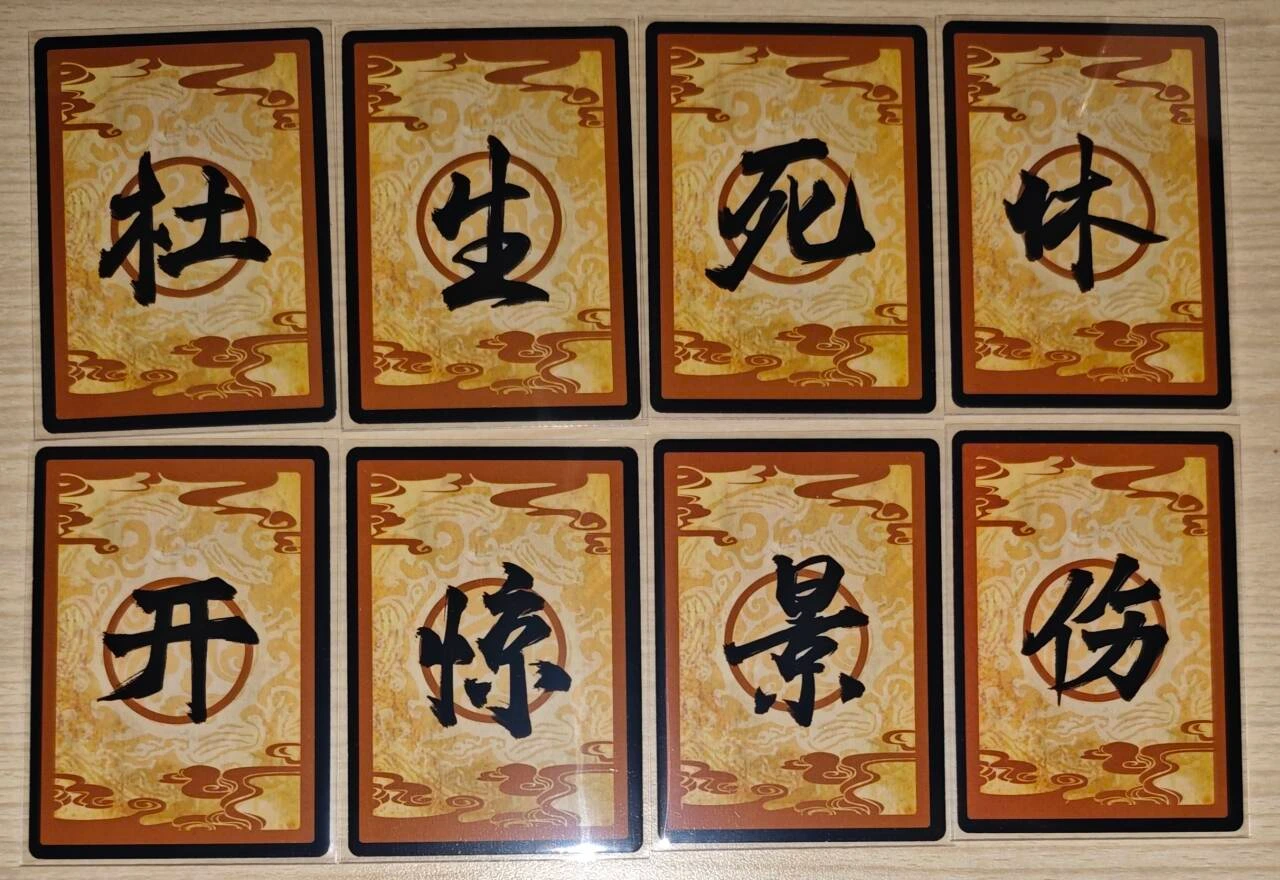 杜 生 死 休
开 惊 景 伤